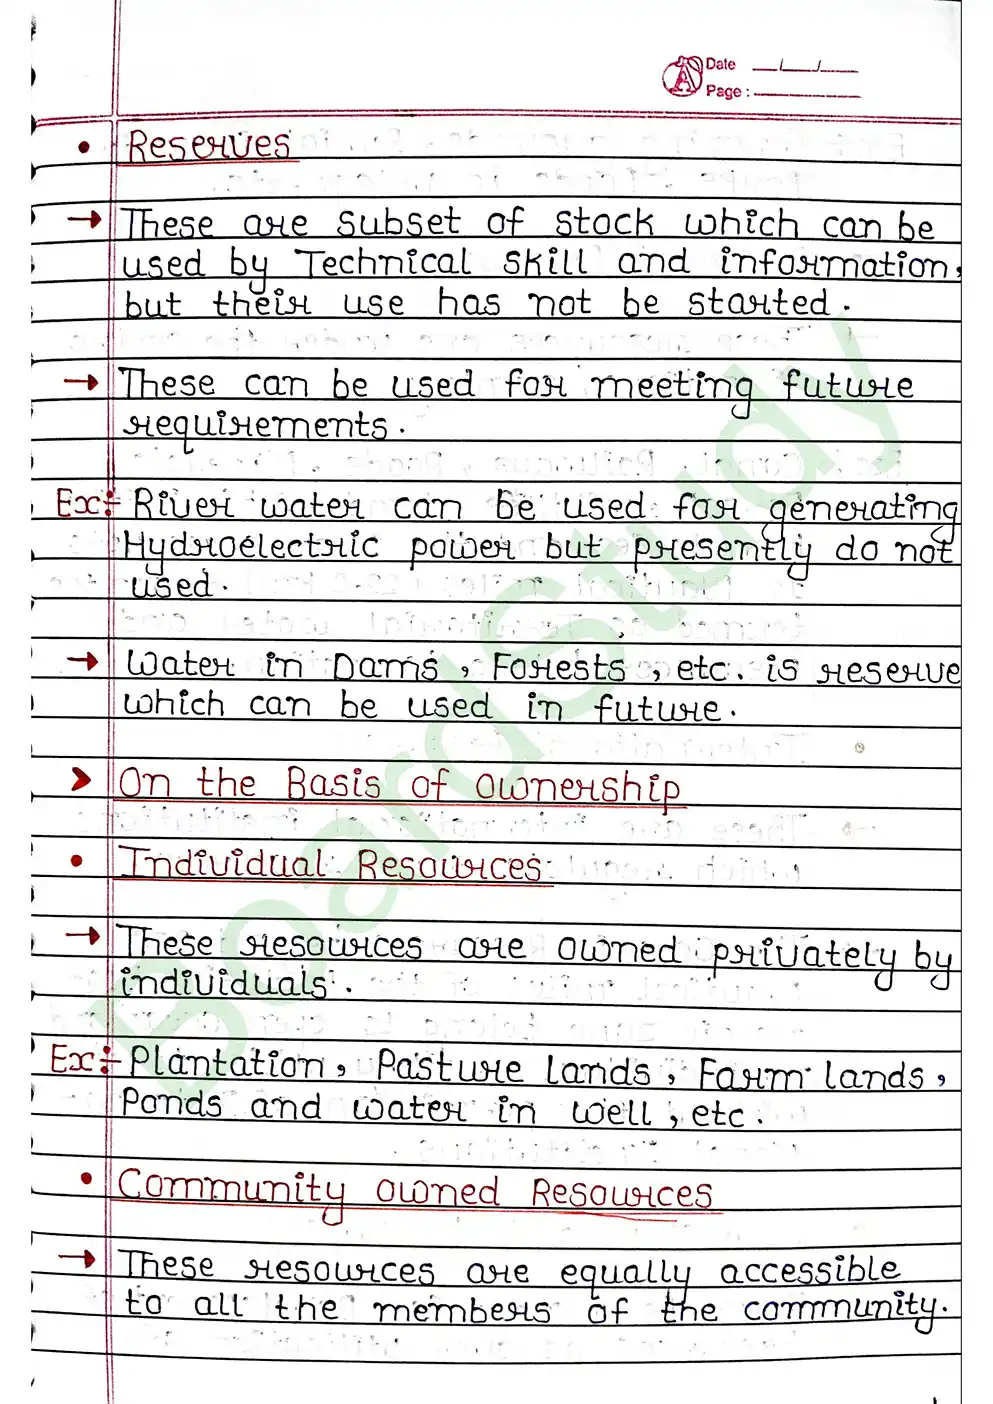 Date __/__/__
Page : ________
• Reserves
→ These are subset of stock which can be
used by Technical skill and information,
but their use has not be started.
→ These can be used for meeting future
requirements.
Ex:- River water can be used for generating
Hydroelectric power but presently do not
used.
→ Water in Dams, Forests, etc. is reserve
which can be used in future.
> On the Basis of Ownership
• Individual Resources
→ These resources are owned privately by
individuals.
Ex:- Plantation, Pasture lands, Farm lands,
Ponds and water in well, etc.
• Community owned Resources
→ These resources are equally accessible
to all the members of the community.
BoardStudy